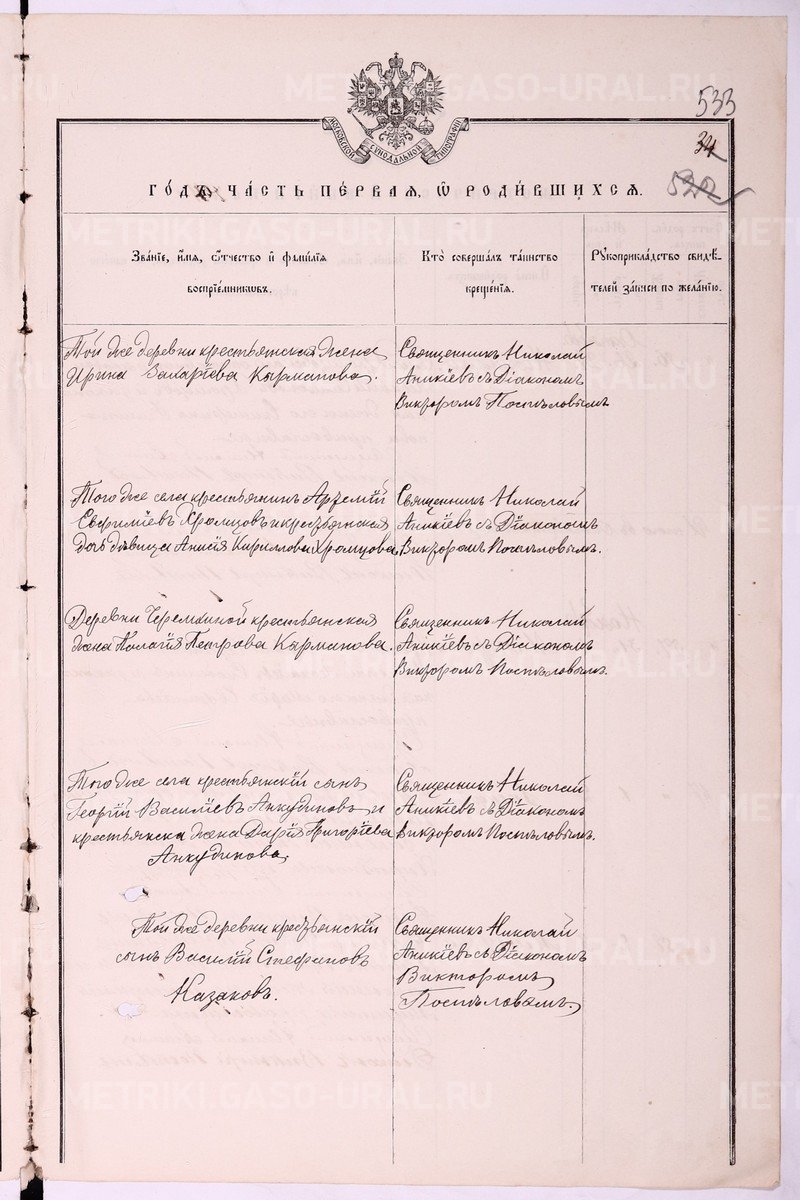 METRIKI.GASO-URAL.RU
533
34
МОСКОВСКОЙ СѴНОДАЛЬНОЙ ТИПОГРАФІИ
Го́дꙋ ЧА́СТЬ ПЕ́РВАЯ, Ѡ҆ РОДИ́ВШИХСЯ.
Зва́нїе, и҆́мѧ, ѻ҆́тчество и҆ фами́лїѧ
воспрїе́мникѡвъ.
Кто̀ соверша́лъ та́инство
креще́нїѧ.
Рꙋкоприкла́дство свидѣ́-
телей за́писи по жела́нїю.
Той же деревни крестьянская жена
Ирина Захаріева Кырманова.
Священникъ Николай
Аникіевъ съ Діакономъ
Викторомъ Поспѣловымъ
Того же села крестьянинъ Артемій
Евфиміевъ Хромцовъ и крестьянская
дочь дѣвица Анисія Кириллова Хромцова.
Священникъ Николай
Аникіевъ съ Діакономъ
Викторомъ Поспѣловымъ.
Деревни Черемхиной крестьянская
жена Пелагія Петрова Кырманова.
Священникъ Николай
Аникіевъ съ Діакономъ
Викторомъ Поспѣловымъ.
Того же села крестьянскій сынъ
Георгій Василіевъ Анкудиновъ и
крестьянска жена Дарія Григоріева
Анкудинова
Священникъ Николай
Аникіевъ съ Діакономъ
Викторомъ Поспѣловымъ.
Той же деревни крестьянскій
сынъ Василій Стефановъ
Казаковъ.
Священникъ Николай
Аникіевъ съ Діакономъ
Викторомъ
Поспѣловымъ.
METRIKI.GASO-URAL.RU